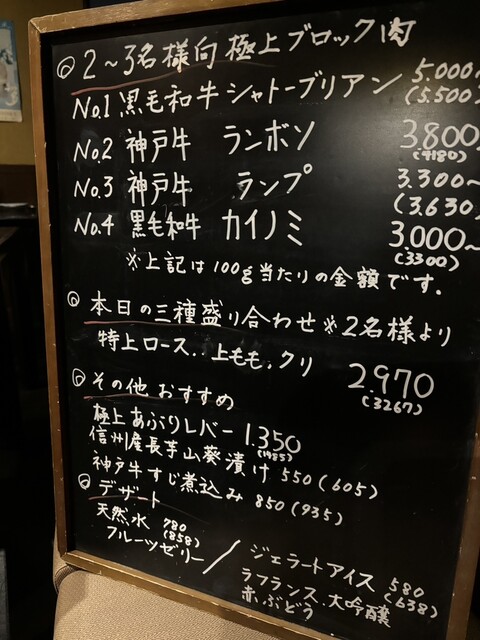 ◎2～3名様向 極上ブロック肉
No.1 黒毛和牛シャトーブリアン 5.000～
(5.500)
No.2 神戸牛 ランボソ 3.800
(4180)
No.3 神戸牛 ランプ 3.300～
(3.630)
No.4 黒毛和牛 カイノミ 3.000～
(3300)
※上記は100g当たりの金額です.
◎本日の三種盛り合わせ※2名様より
特上ロース..上もも.クリ 2.970
(3267)
◎その他おすすめ
極上あぶりレバー 1.350
信州産長芋山葵漬け 550(605)
神戸牛すじ煮込み 850(935)
◎デザート
天然水 780
(858)
フルーツゼリー／ジェラートアイス 580
(638)
ラフランス.大吟醸
赤ぶどう